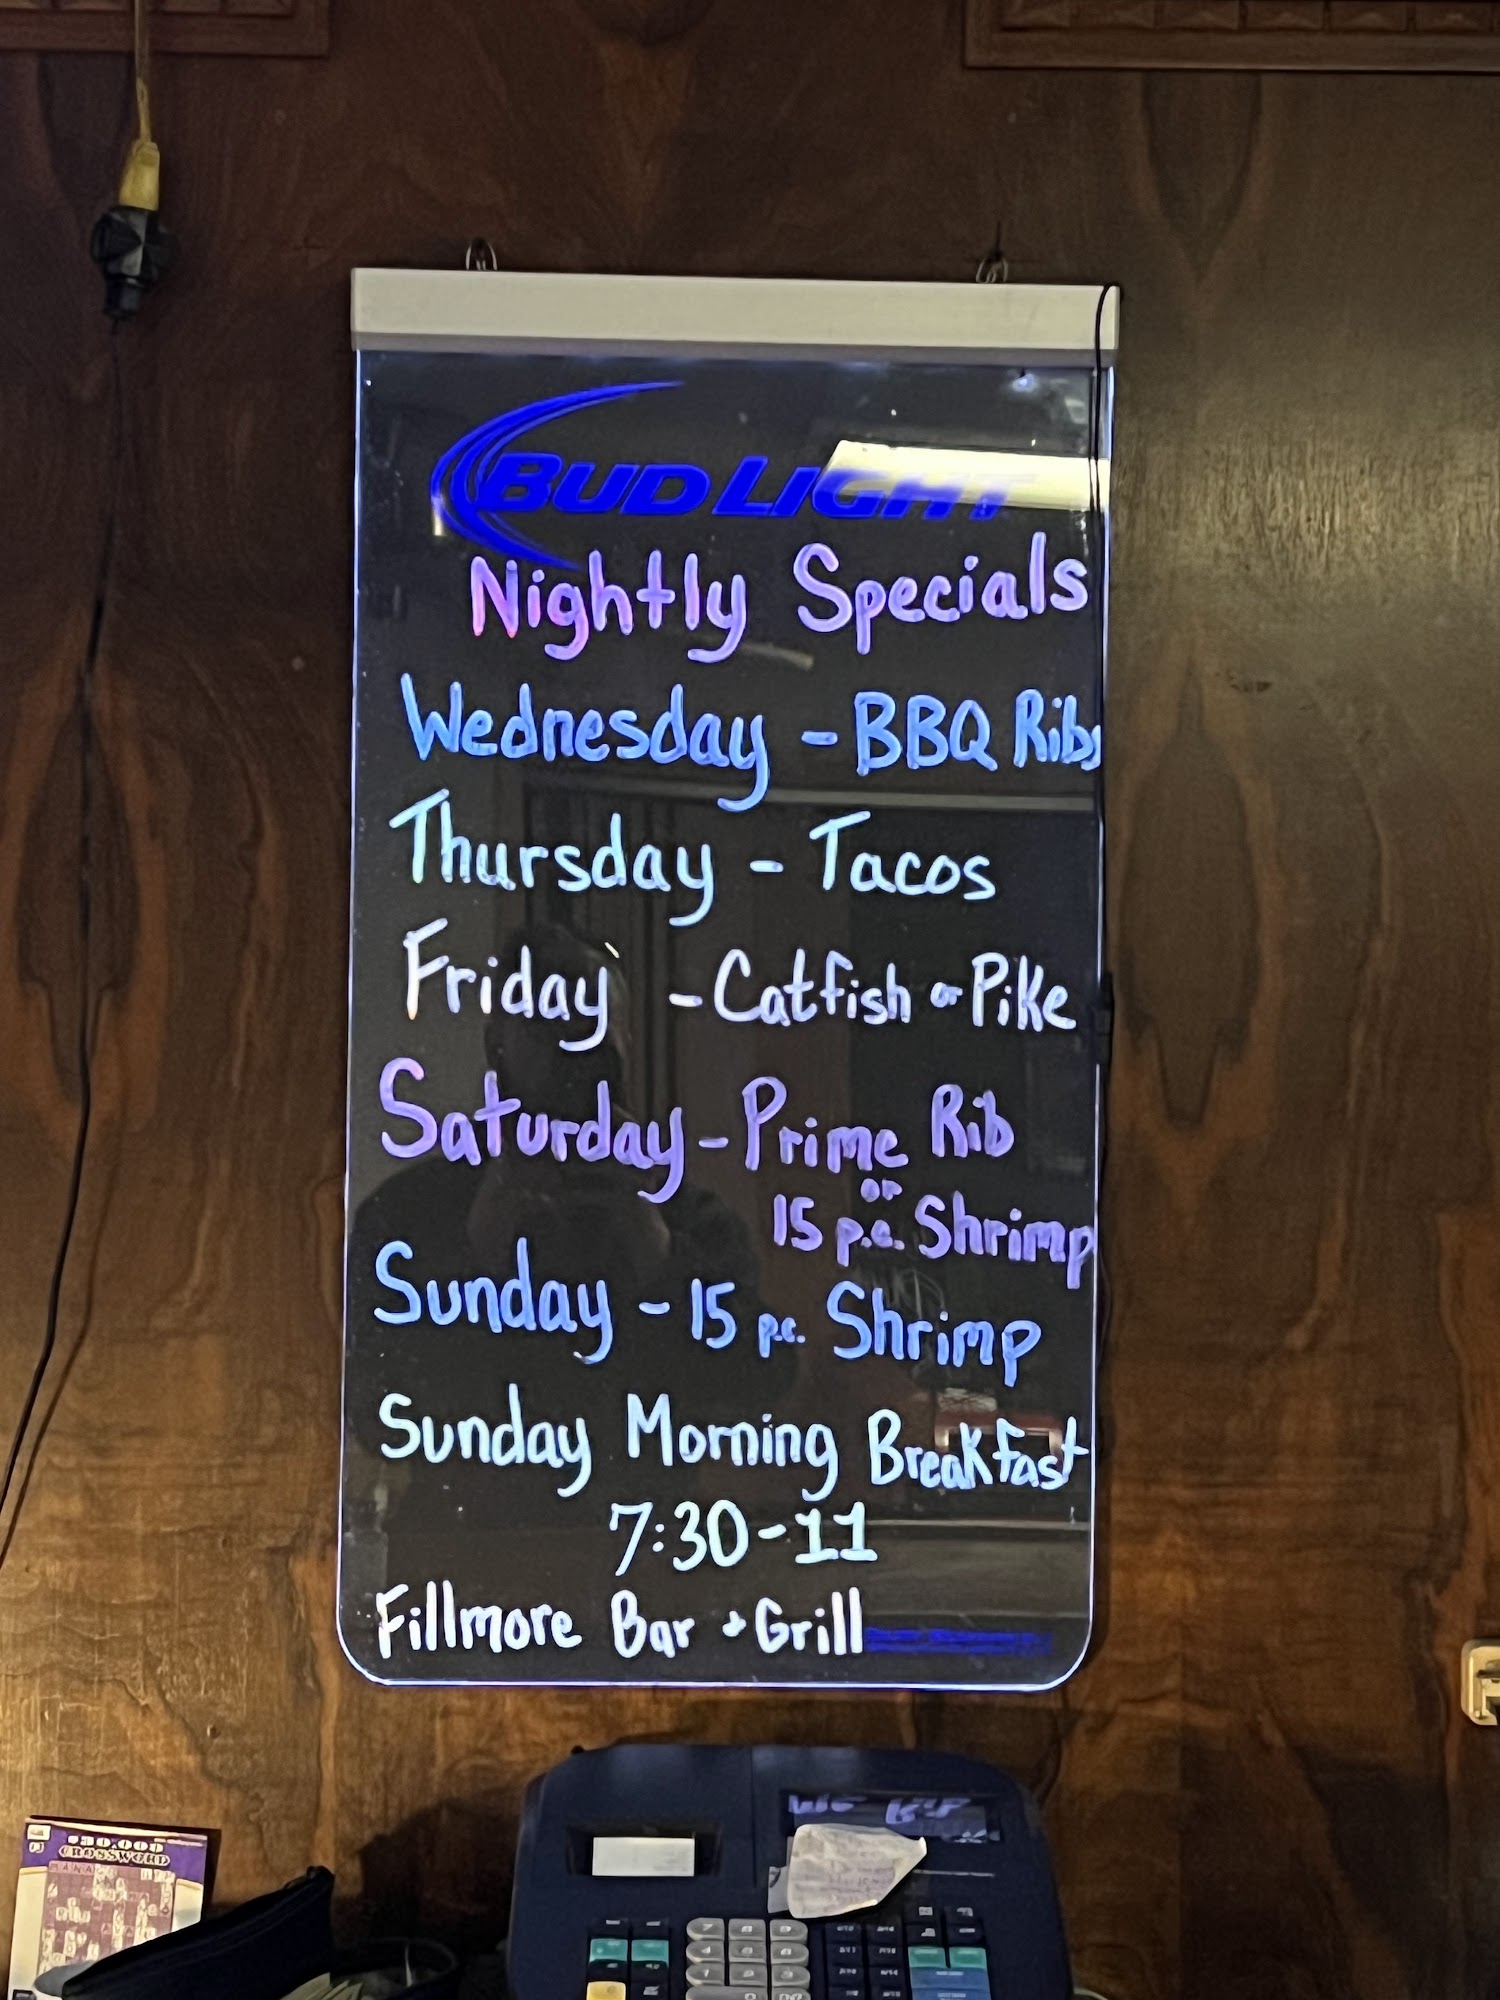 BUD LIGHT
Nightly Specials
Wednesday - BBQ Ribs
Thursday - Tacos
Friday - Catfish or Pike
Saturday - Prime Rib
or
15 p.c. Shrimp
Sunday - 15 p.c. Shrimp
Sunday Morning Breakfast
7:30-11
Fillmore Bar + Grill
$30,000
CROSSWORD